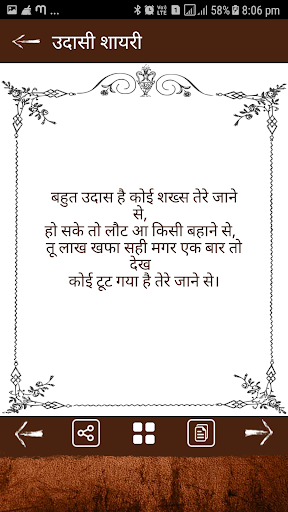 58% 8:06 pm
उदासी शायरी
बहुत उदास है कोई शख्स तेरे जाने
से,
हो सके तो लौट आ किसी बहाने से,
तू लाख खफा सही मगर एक बार तो
देख
कोई टूट गया है तेरे जाने से।